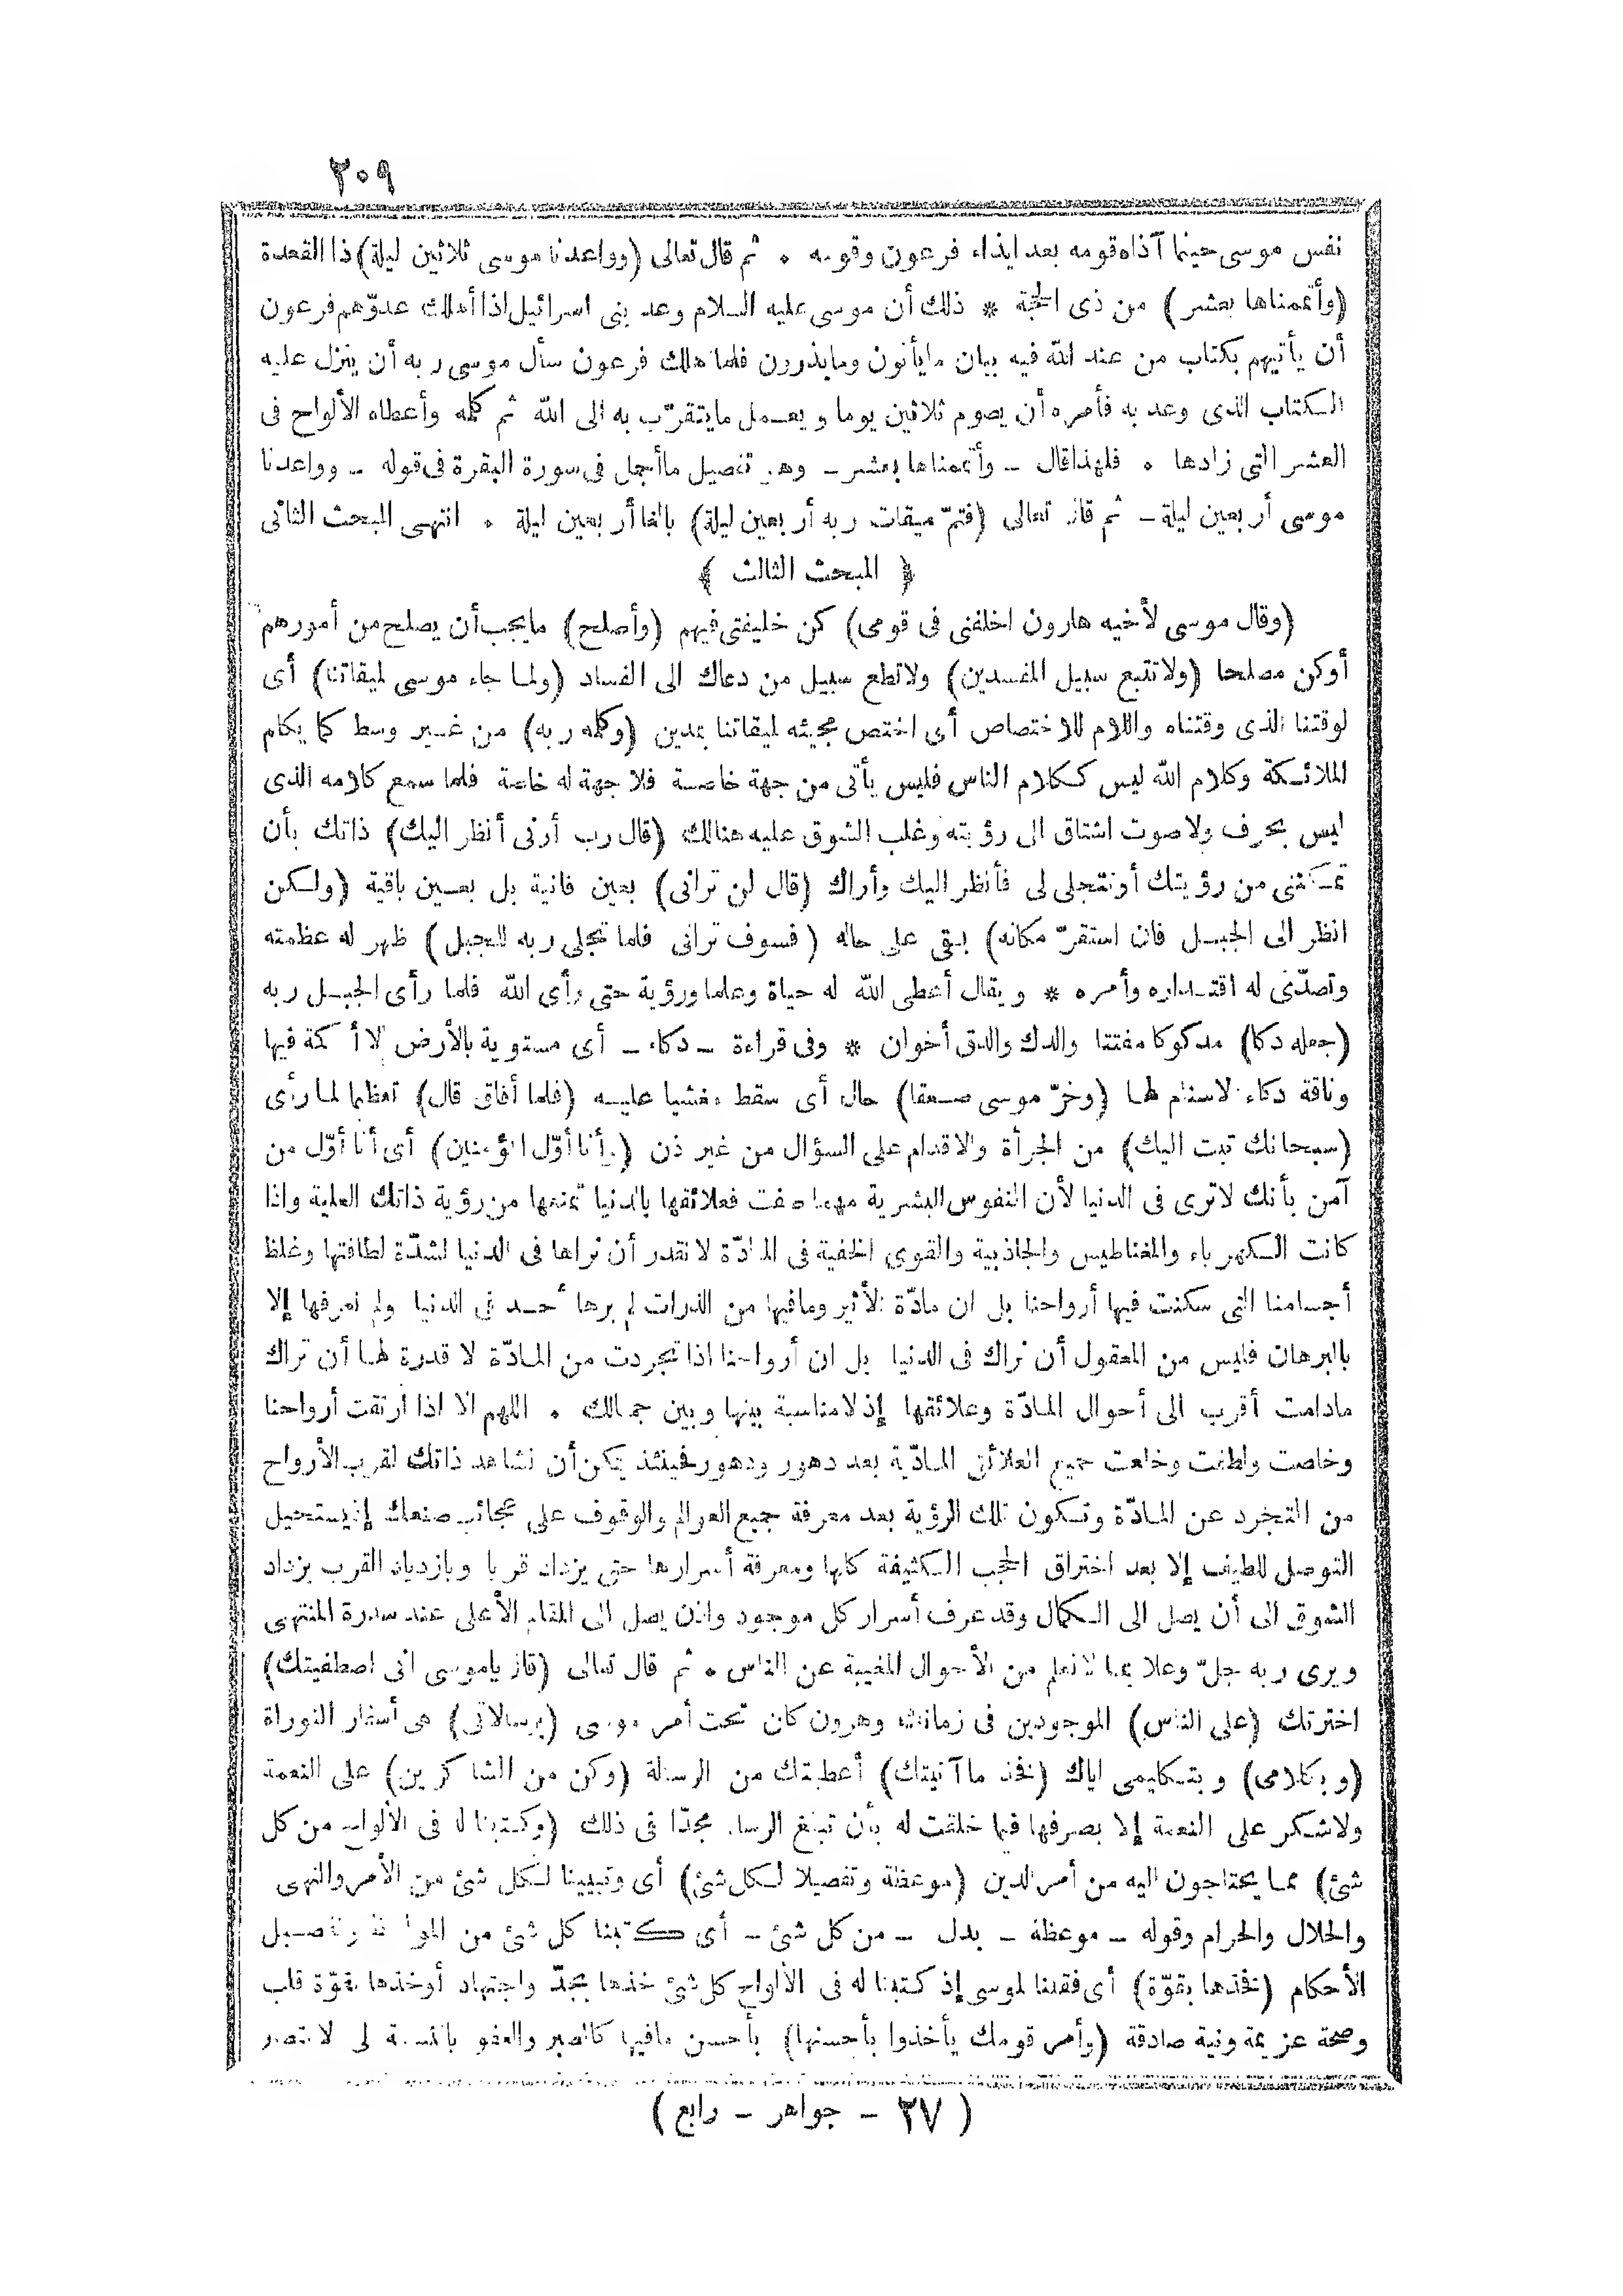 ٢٠٩
نفس موسى حينما آذاه قومه بعد ايذاء فرعون وقومه • ثم قال تعالى (وواعدنا موسى ثلاثين ليلة) ذا القعدة
(وأتممناها بعشر) من ذى الحجة * ذلك أن موسى عليه السلام وعد بنى اسرائيل اذا أهلك عدوّهم فرعون
أن يأتيهم بكتاب من عند الله فيه بيان ما يأتون وما يذرون فلما هلك فرعون سأل موسى ربه أن ينزل عليه
الكتاب الذى وعد به فأمره أن يصوم ثلاثين يوما ويعمل ما يتقرّب به الى الله ثم كلمه وأعطاه الألواح فى
العشر التى زادها • فلهذا قال – وأتممناها بعشر – وهو تفصيل ما أجمل فى سورة البقرة فى قوله – وواعدنا
موسى أربعين ليلة – ثم قال تعالى (فتمّ ميقات ربه أربعين ليلة) بالغا أربعين ليلة • انتهى المبحث الثانى
﴿ المبحث الثالث ﴾
(وقال موسى لأخيه هارون اخلفنى فى قومى) كن خليفتى فيهم (وأصلح) ما يجب أن يصلح من أمورهم
أو كن مصلحا (ولا تتبع سبيل المفسدين) ولا تطع سبيل من دعاك الى الفساد (ولما جاء موسى لميقاتنا) أى
لوقتنا الذى وقتناه واللام للاختصاص أى اختص مجيئه لميقاتنا بمدين (وكلمه ربه) من غير وسط كما يكلم
الملائكة وكلام الله ليس ككلام الناس فليس يأتى من جهة خاصة فلا جهة له خاصة فلما سمع كلامه الذى
ليس بحرف ولا صوت اشتاق الى رؤيته وغلب الشوق عليه هنالك (قال رب أرنى أنظر اليك) ذاتك بأن
تمكننى من رؤيتك أو تتجلى لى فأنظر اليك وأراك (قال لن ترانى) بعين فانية بل بعين باقية (ولكن
انظر الى الجبل فان استقرّ مكانه) بقى على حاله (فسوف ترانى فلما تجلى ربه للجبل) ظهر له عظمته
وتصدّى له اقتداره وأمره * ويقال أعطى الله له حياة وعلما ورؤية حتى رأى الله فلما رأى الجبل ربه
(جعله دكا) مدكوكا مفتتا والدك والدق أخوان * وفى قراءة – دكاء – أى مستوية بالأرض لا أكمة فيها
وناقة دكاء لا سنام لها (وخرّ موسى صعقا) حال أى سقط مغشيا عليه (فلما أفاق قال) تعظيما لما رأى
(سبحانك تبت اليك) من الجرأة والاقدام على السؤال من غير إذن (وأنا أوّل المؤمنين) أى أنا أوّل من
آمن بأنك لا ترى فى الدنيا لأن النفوس البشرية مهما صفت فعلائقها بالدنيا تمنعها من رؤية ذاتك العلية واذا
كانت الكهرباء والمغناطيس والجاذبية والقوى الخفية فى المادّة لا نقدر أن نراها فى الدنيا لشدّة لطافتها وغلظ
أجسامنا التى سكنت فيها أرواحنا بل ان مادّة الأثير وما فيها من الذرات لم يرها أحد فى الدنيا ولم نعرفها إلا
بالبرهان فليس من المعقول أن نراك فى الدنيا بل ان أرواحنا اذا تجردت من المادّة لا قدرة لها أن تراك
مادامت أقرب الى أحوال المادّة وعلائقها إذ لا مناسبة بينها وبين جمالك • اللهم الا اذا ارتقت أرواحنا
وخلصت ولطفت وخلعت جميع العلائق المادّية بعد دهور ودهور فحينئذ يمكن أن نشاهد ذاتك لقرب الأرواح
من التجرد عن المادّة وتكون تلك الرؤية بعد معرفة جميع العوالم والوقوف على عجائب صنعك إذ يستحيل
التوصل للطيف إلا بعد اختراق الحجب الكثيفة كلها ومعرفة أسرارها حتى يزداد قربا وبازدياد القرب يزداد
الشوق الى أن يصل الى الكمال وقد عرف أسرار كل موجود واذن يصل الى المقام الأعلى عند سدرة المنتهى
ويرى ربه جلّ وعلا بما لا نعلم من الأحوال المغيبة عن الناس • ثم قال تعالى (قال ياموسى انى اصطفيتك)
اخترتك (على الناس) الموجودين فى زمانك وهرون كان تحت أمر موسى (برسالاتى) هى أسفار التوراة
(وبكلامى) وبتكليمى اياك (فخذ ما آتيتك) أعطيتك من الرسالة (وكن من الشاكرين) على النعمة
ولا شكر على النعمة إلا بصرفها فيما خلقت له بأن تبلغ الرسالة مجدّا فى ذلك (وكتبنا له فى الألواح من كل
شئ) مما يحتاجون اليه من أمر الدين (موعظة وتفصيلا لكل شئ) أى وتبيينا لكل شئ من الأمر والنهى
والحلال والحرام وقوله – موعظة – بدل – من كل شئ – أى كتبنا كل شئ من المواعظ وتفصيل
الأحكام (فخذها بقوّة) أى فقلنا لموسى إذ كتبنا له فى الألواح كل شئ خذها بجدّ واجتهاد أو خذها بقوّة قلب
وصحة عزيمة ونية صادقة (وأمر قومك يأخذوا بأحسنها) بأحسن ما فيها كالصبر والعفو بالنسبة
(٢٧ – جواهر – رابع)